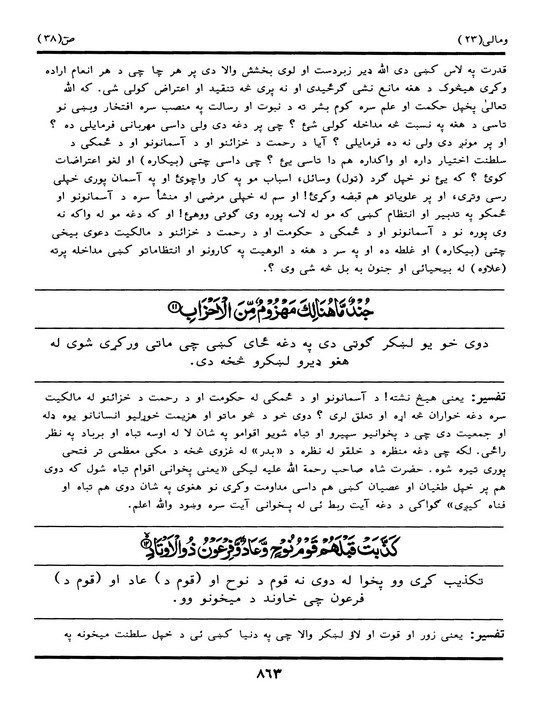 ومالی(۲۳)
صٓ(۳۸)
قدرت په لاس کښی دی الله ډیر زبردست او لوی بخشش والا دی پر هر چا چی د هر انعام اراده
وکړی هیڅوک د هغه مانع نشی گرځیدی او نه پری څه تنقید او اعتراض کولی شی. که الله
تعالیٰ پخپل حکمت او علم سره کوم بشر ته د نبوت او رسالت په منصب سره افتخار وبښی نو
تاسی د هغه په نسبت څه مداخله کولی شئ ؟ چی پر دغه دی ولی داسی مهربانی فرمایلی ده ؟
او پر مونږ دی ولی نه ده فرمایلی ؟ آیا د رحمت د خزائنو او د آسمانونو او د ځمکی د
سلطنت اختیار داره او واکداره هم دا تاسی یئ ؟ چی داسی چتی (بیکاره) او لغو اعتراضات
کوئ ؟ که یئ نو خپل گرد (ټول) وسائل، اسباب مو په کار واچوئ او په آسمان پوری خپلی
رسی وتړی، او پر علویاتو هم قبضه وکړئ! او سم له خپلی مرضی او منشأ سره د آسمانونو او
ځمکو په تدبیر او انتظام کښی که مو له لاسه پوره وی گوتی ووهئ! او که دغه مو له واکه نه
وی پوره نو د آسمانونو او د ځمکی د حکومت او د رحمت د خزائنو د مالکیت دعوی بیخی
چتی (بیکاره) او غلطه ده او په سر د هغه د الوهیت په کارونو او انتظاماتو کښی مداخله پرته
(علاوه) له بیحیائی او جنون به بل څه شی وی ؟.
جُنْدٌ مَّا هُنَالِكَ مَهْزُوْمٌ مِّنَ الْاَحْزَابِ ۱۱
دوی خو یو لښکر گوټی دی په دغه ځای کښی چی ماتی ورکړی شوی له
هغو ډیرو لښکرو څخه دی.
تفسیر: یعنی هیڅ نشته! د آسمانونو او د ځمکی له حکومت او د رحمت د خزائنو له مالکیت
سره دغه خواران څه اړه او تعلق لری ؟ دوی خو د څو ماتو او هزیمت خوړلیو انسانانو یوه ډله
او جمعیت دی چی د پخوانیو سپیرو او تباه شویو اقوامو په شان لا له اوسه تباه او برباد په نظر
راځی. لکه چی دغه منظره د خلقو له نظره د «بدر» له غزوی څخه د مکی معظمی تر فتحی
پوری تیره شوه. حضرت شاه صاحب رحمة الله علیه لیکی «یعنی پخوانی اقوام تباه شول که دوی
هم پر خپل طغیان او عصیان کښی هم داسی مداومت وکړی نو هغوی په شان دوی هم تباه او
فناه کیږی» گواکی د دغه آیت ربط ئی له پخوانی آیت سره وښود والله اعلم.
كَذَّبَتْ قَبْلَهُمْ قَوْمُ نُوْحٍ وَّعَادٌ وَّفِرْعَوْنُ ذُوالْاَوْتَادِ ۱۲
تکذیب کړی وو پخوا له دوی نه قوم د نوح او (قوم د) عاد او (قوم د)
فرعون چی خاوند د میخونو وو.
تفسیر: یعنی زور او قوت او لاؤ لښکر والا چی په دنیا کښی ئی د خپل سلطنت میخونه په
۸۶۳